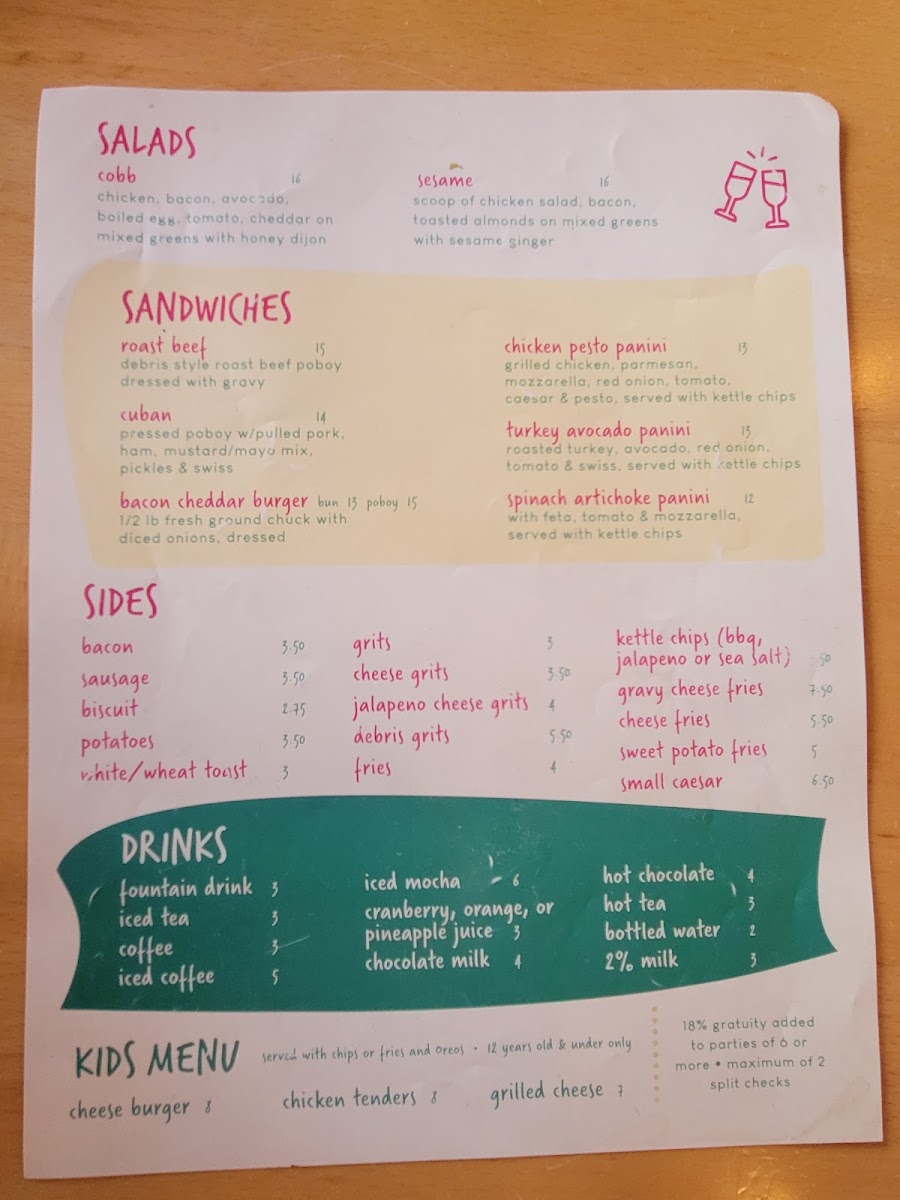 SALADS
cobb 16
chicken, bacon, avocado,
boiled egg, tomato, cheddar on
mixed greens with honey dijon
sesame 16
scoop of chicken salad, bacon,
toasted almonds on mixed greens
with sesame ginger
SANDWICHES
roast beef 15
debris style roast beef poboy
dressed with gravy
cuban 14
pressed poboy w/pulled pork,
ham, mustard/mayo mix,
pickles & swiss
bacon cheddar burger bun 13 poboy 15
1/2 lb fresh ground chuck with
diced onions, dressed
chicken pesto panini 13
grilled chicken, parmesan,
mozzarella, red onion, tomato,
caesar & pesto, served with kettle chips
turkey avocado panini 13
roasted turkey, avocado, red onion,
tomato & swiss, served with kettle chips
spinach artichoke panini 12
with feto, tomato & mozzarella,
served with kettle chips
SIDES
bacon 3.50
sausage 3.50
biscuit 2.75
potatoes 3.50
white/wheat toast 3
grits 3
cheese grits 3.50
jalapeno cheese grits 4
debris grits 5.50
fries 4
kettle chips (bbq,
jalapeno or sea salt)
gravy cheese fries 7.50
cheese fries 5.50
sweet potato fries 5
small caesar 6.50
DRINKS
fountain drink 3
iced tea 3
coffee 3
iced coffee 5
iced mocha 6
cranberry, orange, or
pineapple juice 3
chocolate milk 4
hot chocolate 4
hot tea 3
bottled water 2
2% milk 3
KIDS MENU served with chips or fries and oreos • 12 years old & under only
cheese burger 8
chicken tenders 8
grilled cheese 7
18% gratuity added
to parties of 6 or
more • maximum of 2
split checks